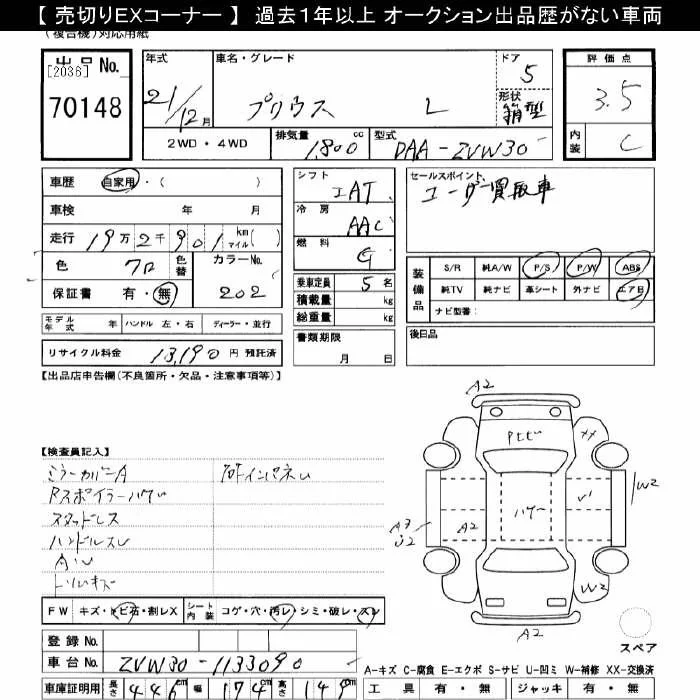 【 売切りEXコーナー 】 過去１年以上 オークション出品歴がない車両
(複合機)対応用紙
出品 No.
[2036]
70148
年式
21/12月
車名・グレード
プリウス L
ドア
5
形状
箱型
評価点
3.5
内装
C
2WD・4WD
排気量 cc
1,800
型式
DAA-ZVW30
車歴 自家用・( )
車検 年 月
走行 19万2千901 km マイル( )
色 クロ 色替
カラーNo.
202
保証書 有・無
モデル年式 年 ハンドル 左・右 ディーラー・並行
リサイクル料金 13,190 円 預託済
シフト
IAT
冷房
AAC
燃料
G
乗車定員 5 名
積載量 kg
総重量 kg
書類期限
月 日
セールスポイント
ユーザー買取車
装備品
S/R 純A/W P/S P/W ABS
純TV 純ナビ 革シート 外ナビ エアB
ナビ型番:
後日品
【出品店申告欄(不良箇所・欠品・注意事項等)】
【検査員記入】
ミラーカバーA
Rスポイラーハゲ
スタッドレス
ハンドルスレ
FW キズ・トビ石・割レX シート内装 コゲ・穴・汚レ・シミ・破レ・スレ
登録 No.
車台 No. ZVW30-1133090
車庫証明用 長さ 446cm 幅 174cm 高さ 149cm
A2
Pトビ
XX
ハゲ
A2
W2
W2
A2
スペア
A-キズ C-腐食 E-エクボ S-サビ U-凹ミ W-補修 XX-交換済
工具 有・無 ジャッキ 有・無